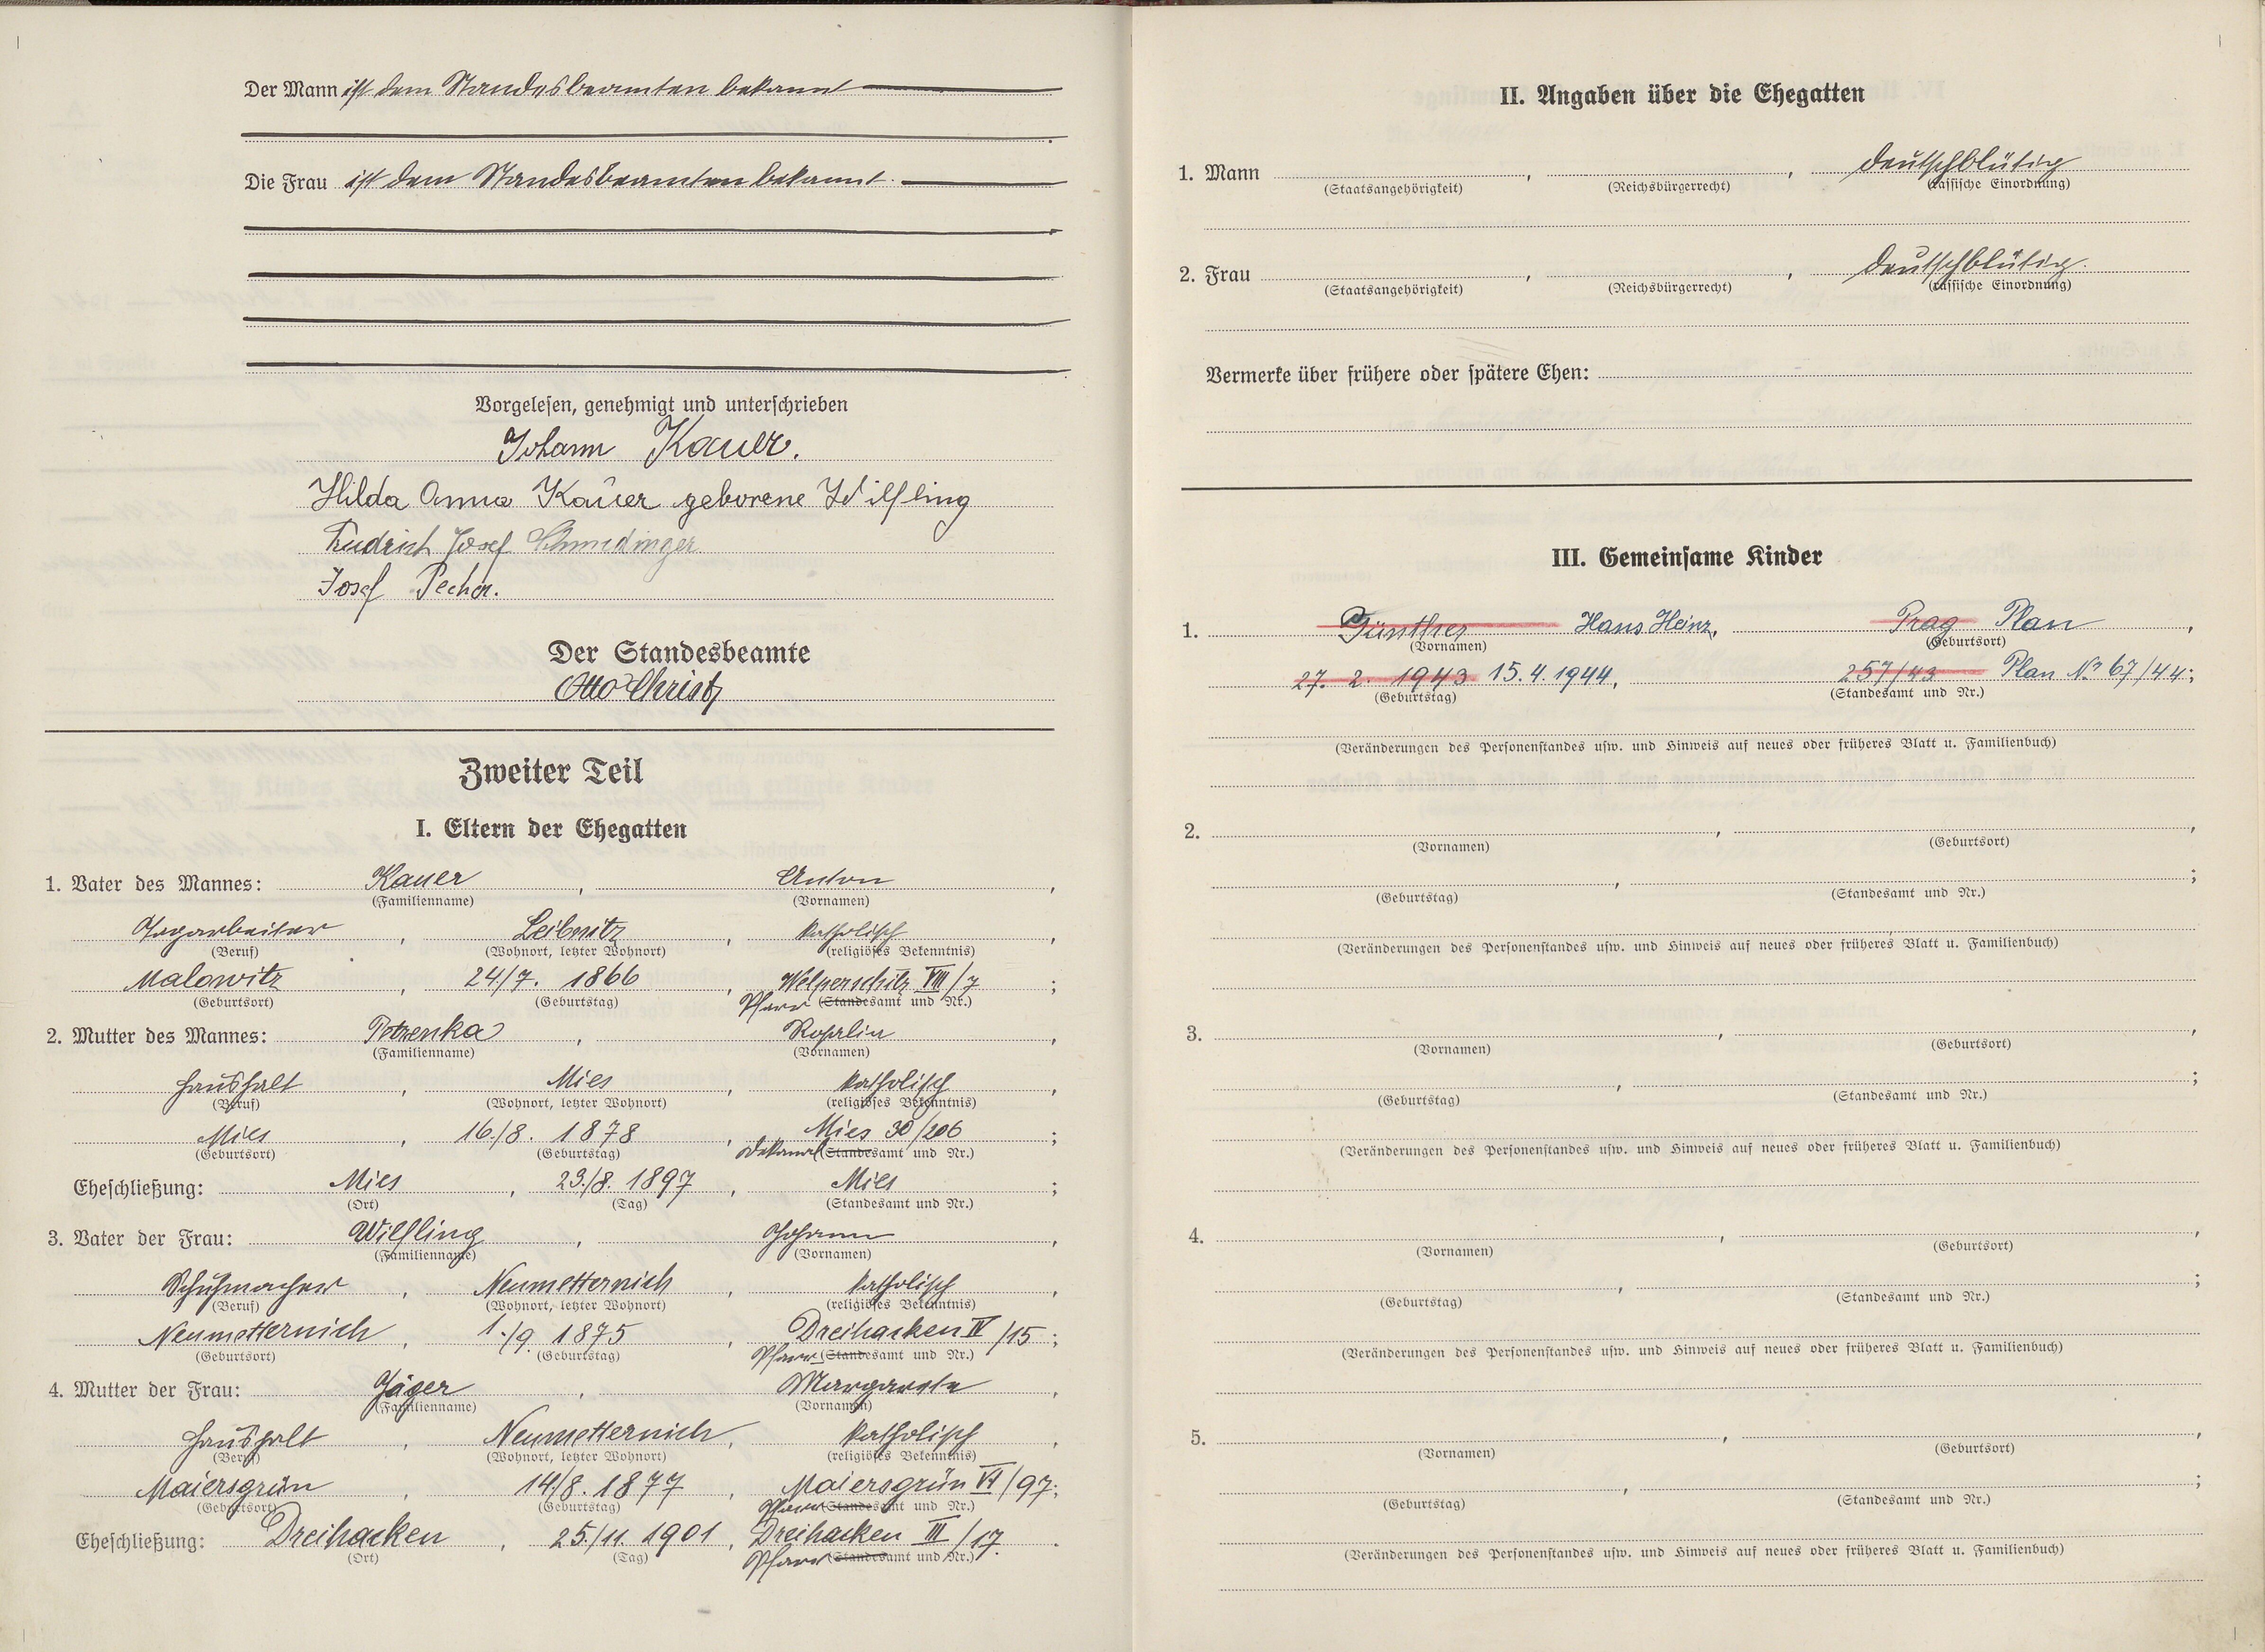 Der Mann ist dem Standesbeamten bekannt
Die Frau ist dem Standesbeamten bekannt.
Vorgelesen, genehmigt und unterschrieben
Johann Kauer.
Hilda Anna Kauer geborene Wilfling
Friedrich Josef Schmedinger
Josef Pecher.
Der Standesbeamte
Otto Christ
Zweiter Teil
I. Eltern der Ehegatten
1. Vater des Mannes: Kauer, Anton,
(Familienname) (Vornamen)
, Leibnitz, katholisch,
(Beruf) (Wohnort, letzter Wohnort) (religiöses Bekenntnis)
Malowitz, 24/7. 1866, Welperschitz VIII/7;
(Geburtsort) (Geburtstag) Pfarr (Standesamt und Nr.)
2. Mutter des Mannes: Petrenka, Rosalia,
(Familienname) (Vornamen)
Haushalt, Mies, katholisch,
(Beruf) (Wohnort, letzter Wohnort) (religiöses Bekenntnis)
Mies, 16./8. 1878, Mies 30/206;
(Geburtsort) (Geburtstag) Dekanal (Standesamt und Nr.)
Eheschließung: Mies, 23./8. 1897, Mies;
(Ort) (Tag) (Standesamt und Nr.)
3. Vater der Frau: Wilfling, Johann,
(Familienname) (Vornamen)
Schuhmacher, Neumetternich, katholisch,
(Beruf) (Wohnort, letzter Wohnort) (religiöses Bekenntnis)
Neumetternich, 1./9. 1875, Dreihacken IV/15;
(Geburtsort) (Geburtstag) Pfarr (Standesamt und Nr.)
4. Mutter der Frau: Jäger, Margarete,
(Familienname) (Vornamen)
Haushalt, Neumetternich, katholisch,
(Beruf) (Wohnort, letzter Wohnort) (religiöses Bekenntnis)
Maiersgrün, 14/8. 1877, Maiersgrün VI/97;
(Geburtsort) (Geburtstag) Pfarr (Standesamt und Nr.)
Eheschließung: Dreihacken, 25./11. 1901, Dreihacken III/17.
(Ort) (Tag) Pfarr (Standesamt und Nr.)
II. Angaben über die Ehegatten
1. Mann , , deutschblütig
(Staatsangehörigkeit) (Reichsbürgerrecht) (rassische Einordnung)
2. Frau , , deutschblütig.
(Staatsangehörigkeit) (Reichsbürgerrecht) (rassische Einordnung)
Vermerke über frühere oder spätere Ehen:
III. Gemeinsame Kinder
1. Günther Hans Heinz, Prag Plan,
(Vornamen) (Geburtsort)
27. 2. 1943 15.4.1944, 257/43 Plan No 67/44;
(Geburtstag) (Standesamt und Nr.)
(Veränderungen des Personenstandes usw. und Hinweis auf neues oder früheres Blatt u. Familienbuch)
2. , ,
(Vornamen) (Geburtsort)
, ;
(Geburtstag) (Standesamt und Nr.)
(Veränderungen des Personenstandes usw. und Hinweis auf neues oder früheres Blatt u. Familienbuch)
3. , ,
(Vornamen) (Geburtsort)
, ;
(Geburtstag) (Standesamt und Nr.)
(Veränderungen des Personenstandes usw. und Hinweis auf neues oder früheres Blatt u. Familienbuch)
4. , ,
(Vornamen) (Geburtsort)
, ;
(Geburtstag) (Standesamt und Nr.)
(Veränderungen des Personenstandes usw. und Hinweis auf neues oder früheres Blatt u. Familienbuch)
5. , ,
(Vornamen) (Geburtsort)
, ;
(Geburtstag) (Standesamt und Nr.)
(Veränderungen des Personenstandes usw. und Hinweis auf neues oder früheres Blatt u. Familienbuch)